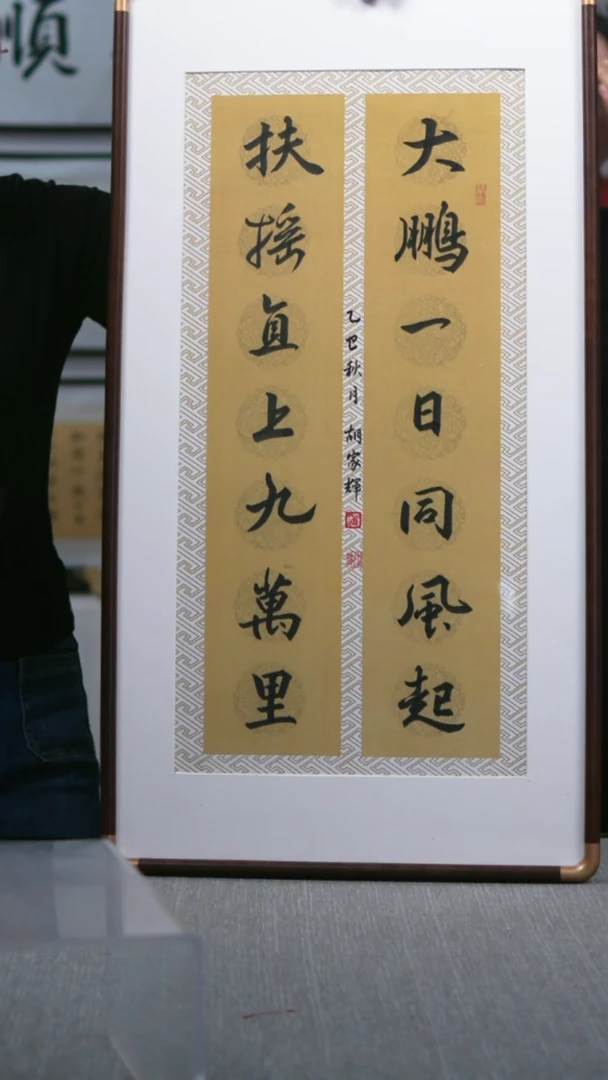 大鵬一日同風起
扶摇直上九萬里
乙巳秋月 胡家輝
順